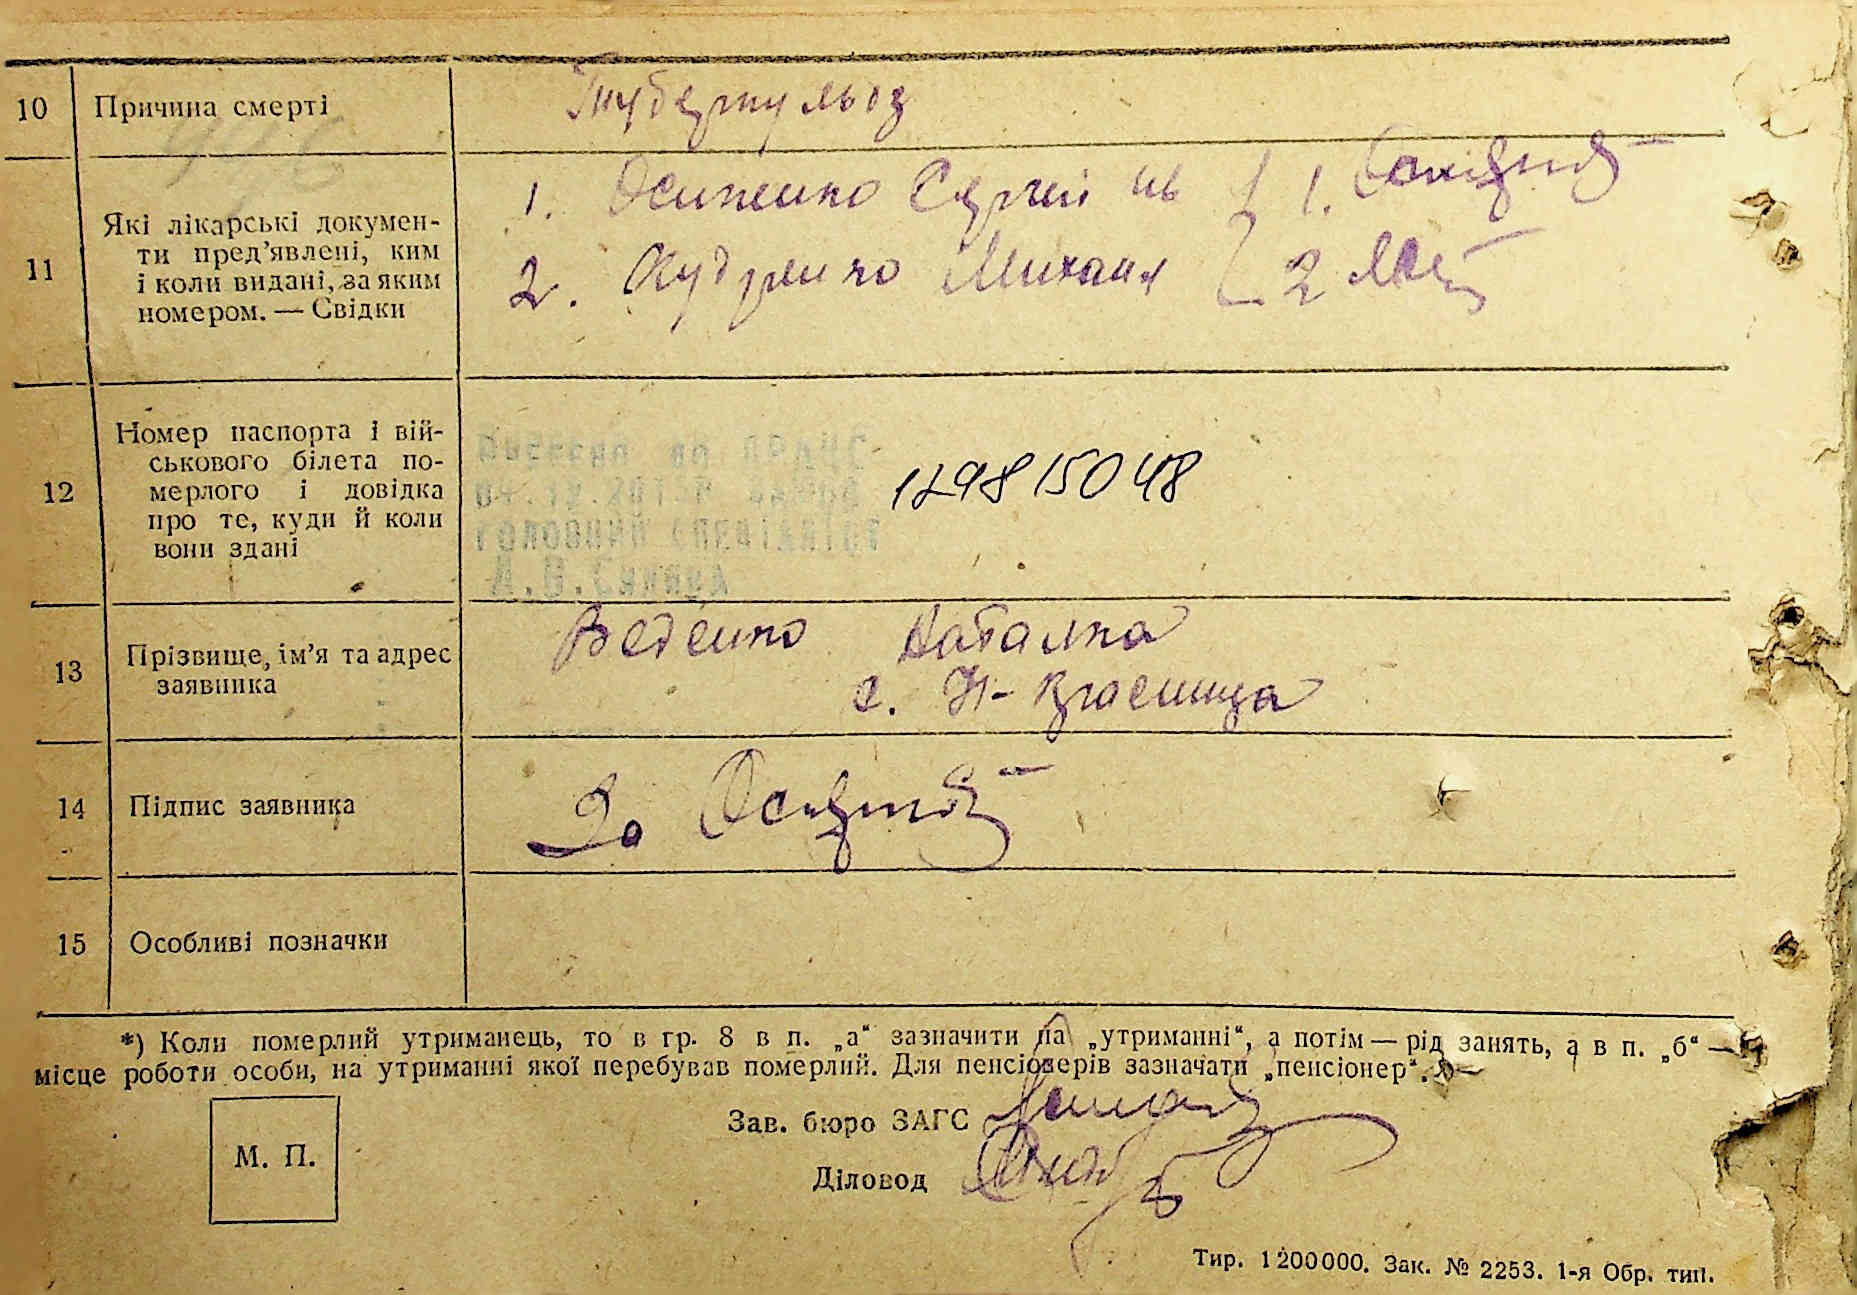 10 Причина смерті Туберкульоз
11 Які лікарські докумен-
ти пред’явлені, ким
і коли видані, за яким
номером. — Свідки
1. Осипенко Сергій 1.
2. Михаил 2
12 Номер паспорта і вій-
ськового білета по-
мерлого і довідка
про те, куди й коли
вони здані
Внесено до ДРАЦС
головний спеціаліст
129815048
13 Прізвище, ім’я та адрес
заявника
Веденко Наталка
с. Н-
14 Підпис заявника За
15 Особливі позначки
*) Коли померлий утриманець, то в гр. 8 в п. „а“ зазначити на „утриманні“, а потім — рід занять, а в п. „б“ —
місце роботи особи, на утриманні якої перебував померлий. Для пенсіонерів зазначати „пенсіонер“.
Зав. бюро ЗАГС
М. П.
Діловод
Тир. 1200000. Зак. № 2253. 1-я Обр. тип.